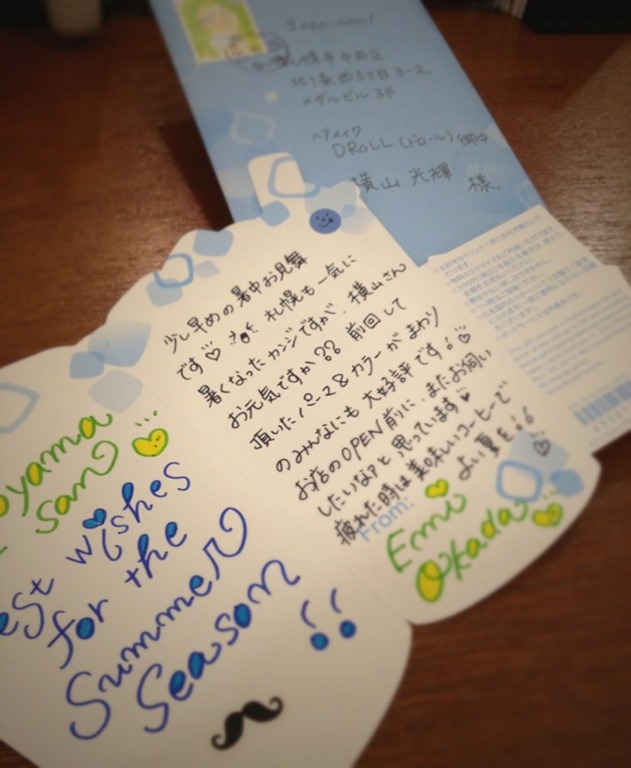 〒060-0001
札幌市中央区
北1条西3丁目3-2
メダルビル3F
ヘアメイク
DRoLL (ドロール) 御中
横山 光輝 様
少し早めの暑中お見舞
です♡ 札幌も一気に
暑くなったカンジですが、横山さん
お元気ですか?? 前回して
頂いたパーマ&カラーがまわり
のみんなにも大好評です!♡
お店のOPEN前に、またお伺い
したいなァと思っています♡
疲れた時は美味しいコーヒーで
よい夏を!! ♡
From:
Emi
Okada
oyama
san
est wishes
for the
Summer
Season
!!